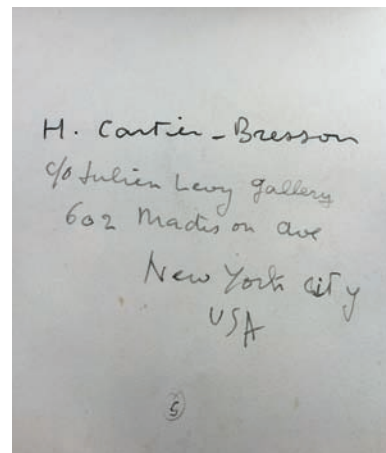 H. Cartier-Bresson
c/o Julien Levy gallery
602 Madison ave
New York city
USA
5